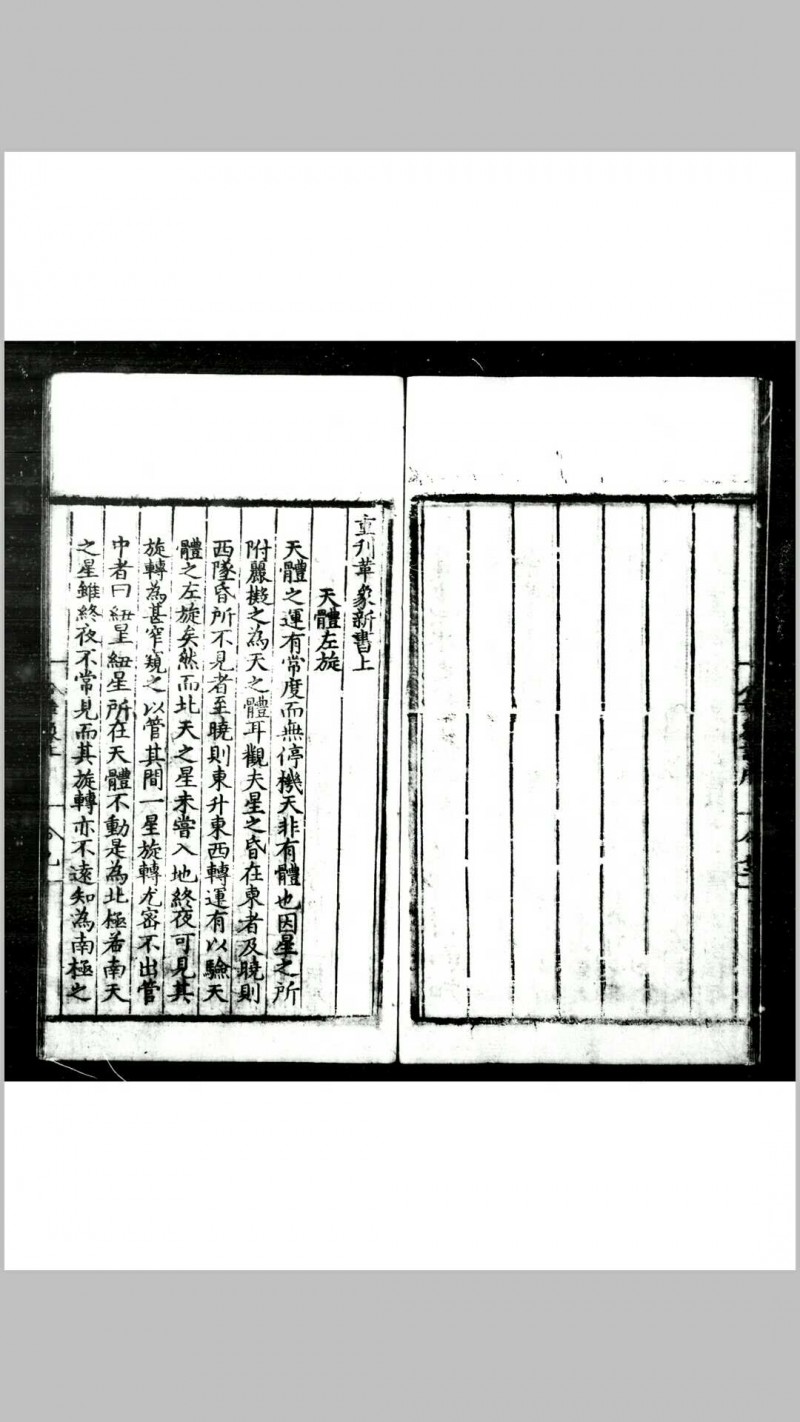 重刊革象新書上
天體左旋
天體之運有常度而無停機天非有體也因星之所
附麗擬之為天之體耳觀夫星之昏在東者及曉則
西墜昏所不見者至曉則東升東西轉運有以驗天
體之左旋矣然而北天之星未嘗入地終夜可見其
旋轉為甚窄窺之以管其間一星旋轉尤密不出管
中者曰紐星紐星所在天體不動是為北極若南天
之星雖終夜不常見而其旋轉亦不遠知為南極之